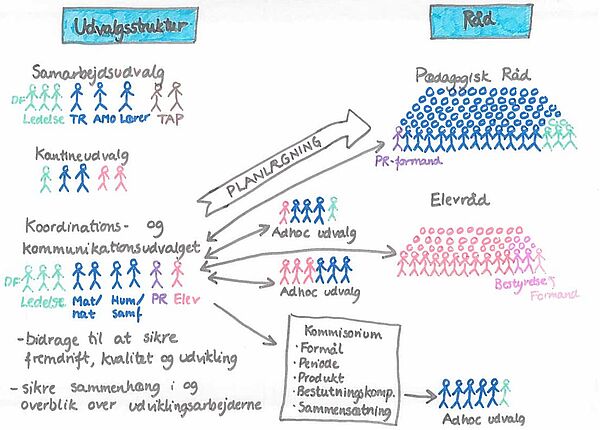 Udvalgsstruktur
Samarbejdsudvalg
DF
Ledelse TR AMO Lærer TAP
Kantineudvalg
Koordinations- og
kommunikationsudvalget
DF
Ledelse Mat/ Hum/ PR Elev
nat samf
-bidrage til at sikre
fremdrift, kvalitet og udvikling
- sikre sammenhæng i og
overblik over udviklingsarbejderne
PLANLÆGNING
Adhoc udvalg
Adhoc udvalg
Kommisorium
· Formål
· Periode
· Produkt
· Beslutningskomp.
· Sammensætning
Råd
Pædagogisk Råd
PR-formand
Elevråd
Bestyrelse
Formand
Adhoc udvalg